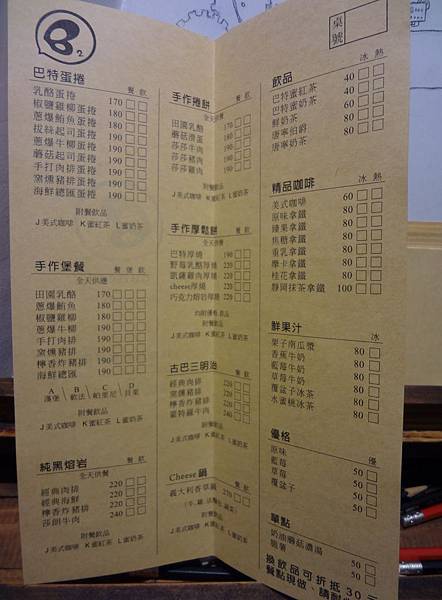 B2
桌號
巴特蛋捲 餐 飲
乳酪蛋捲 170
椒鹽雞柳蛋捲 180
蔥爆鮪魚蛋捲 180
拔絲起司蛋捲 190
蔥爆牛柳蛋捲 190
蘑菇起司蛋捲 190
手打肉排蛋捲 190
窯燻豬排蛋捲 190
海鮮總匯蛋捲 190
附餐飲品
J美式咖啡 K蜜紅茶 L蜜奶茶
手作堡餐 餐 堡 飲
全天供應
田園乳酪 170
蔥爆鮪魚 180
椒鹽雞柳 180
蔥爆牛柳 190
手打肉排 190
窯燻豬排 190
檸香炸豬排 190
海鮮總匯 190
A B C D
漢堡 軟法 帕里尼 貝果
附餐飲品
J美式咖啡 K蜜紅茶 L蜜奶茶
純黑熔岩 餐 飲
全天供餐
經典肉排 220
經典海鮮 220
檸香炸豬排 220
莎朗牛肉 240
附餐飲品
J美式咖啡 K蜜紅茶 L蜜奶茶
手作捲餅 餐 飲
全天供應
田園乳酪 170
蘑菇滑蛋 180
莎莎牛肉 190
莎莎豬肉 190
莎莎雞肉 190
附餐飲品
J美式咖啡 K蜜紅茶 L蜜奶茶
手作厚鬆餅 餐 飲
全天供應
巴特厚燒 190
野莓乳酪厚燒 220
凱薩雞肉厚燒 220
cheese厚燒 220
巧克力熔岩厚燒 220
J美式咖啡 K蜜紅茶 L蜜奶茶
古巴三明治 餐 飲
經典肉排 220
窯燻豬排 220
檸香炸豬排 220
蒙特羅牛肉 240
附餐飲品
J美式咖啡 K蜜紅茶 L蜜奶茶
Cheese鍋 餐 飲
義大利香草鍋 270
附餐飲品
J美式咖啡 K蜜紅茶 L蜜奶茶
飲品 冰 熱
巴特蜜紅茶 40
巴特蜜奶茶 40
鮮奶茶 60
唐寧伯爵 80
唐寧奶茶 80
精品咖啡 冰 熱
美式咖啡 60
原味拿鐵 80
榛果拿鐵 80
焦糖拿鐵 80
重乳拿鐵 80
摩卡拿鐵 80
桂花拿鐵 80
靜岡抹茶拿鐵 100
鮮果汁 冰
栗子南瓜漿 80
香蕉牛奶 80
藍莓牛奶 80
草莓牛奶 80
覆盆子冰茶 80
水蜜桃冰茶 80
優格 優
原味 50
藍莓 50
草莓 50
覆盆子 50
單點
奶油蘑菇濃湯 50
脆薯 50
換飲品可折抵30元
餐點現做，請耐